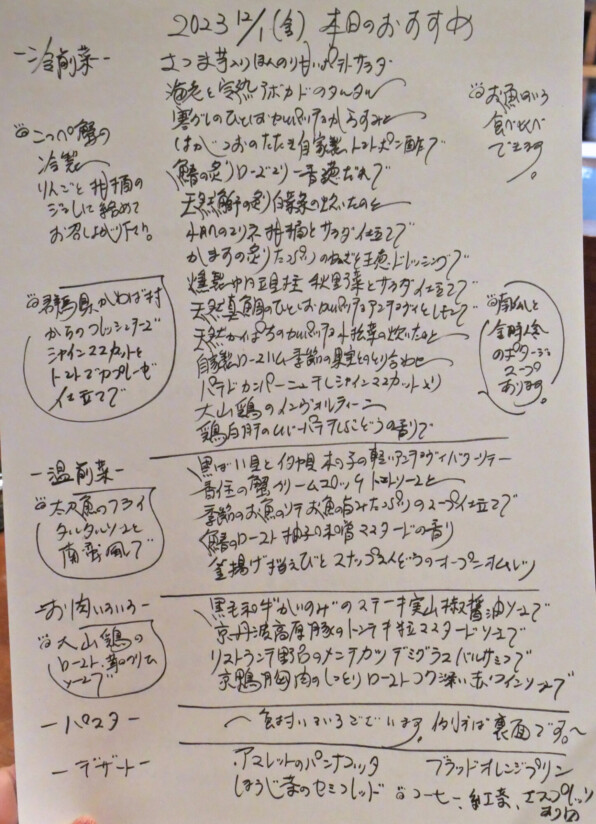 2023 12/1(金) 本日のおすすめ
-冷前菜-
さつま芋入りほんのり甘いポテトサラダ
海老と完熟アボカドのタルタル
寒ぶりのひとしおカルパッチョからすみと
はがつおのたたき自家製トマトポン酢で
鯖の炙り
天然鰤の炙り
サラダ仕立てで
かますの炙り
燻製 秋野菜とサラダ仕立てで
天然真鯛のひとしおカルパッチョアンチョヴィとしそで
天然かんぱちのカルパッチョ
自家製ロースハム季節の果実とのとり合わせ
パテドカンパーニュ シャインマスカットより
大山鶏のインヴォルティーニ
鶏白肝のレバーパテ 香りで
こっぺ蟹の
冷製
りんごと柑橘の
ジュレに絡めて
お召し上がり下さい。
お魚いろいろ
食べくらべ
できます。
群馬県かわば村
からのフレッシュチーズ
シャインマスカットと
トマトでカプレーゼ
仕立てで
金時人参
のポタージュ
スープ
あります。
-温前菜-
黒ばい貝と 木の子の軽いアンチョヴィバターソテー
香住の蟹クリームコロッケ トマトソースと
季節のお魚のソテーお魚の旨みたっぷりのスープ仕立てで
鯖のロースト 柚子味噌マスタードの香り
釜揚げ桜えびとスナップえんどうのオープンオムレツ
太刀魚のフライ
タルタルソースと
南蛮風で
-お肉いろいろ-
黒毛和牛"かいのみ"のステーキ実山椒醤油ソースで
京丹波高原豚のトンテキ粒マスタードソースで
リストランテ野呂のメンチカツ デミグラスバルサミコで
京鴨胸肉のしっとりローストコク深い赤ワインソースで
大山鶏の
ロースト
ソースで
-パスタ-
〜食材いろいろございます。 裏面です。〜
-デザート-
・アマレットのパンナコッタ
ブラッドオレンジプリン
ほうじ茶のセミフレッド
コーヒー、紅茶、エスプレッソ
あり〼